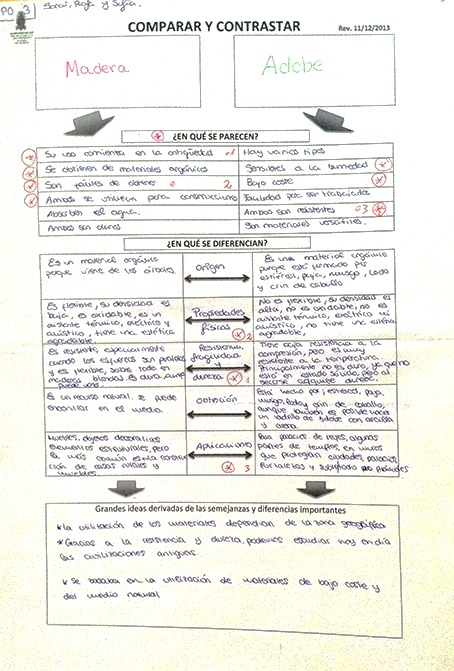 PO 3
Sarai, Roja y Sofía.
COMPARAR Y CONTRASTAR
Rev. 11/12/2013
Madera
Adobe
¿EN QUÉ SE PARECEN?
Su uso comienza en la antigüedad
Hay varios tipos
Se obtienen de materiales orgánicos
Sensibles a la humedad
Son fáciles de obtener
2
Bajo coste
Ambos se utilizan para construcciones
Facilidad para ser trabajadas
Absorben el agua.
Ambos son resistentes
3
Ambos son duros
Son materiales versátiles.
¿EN QUÉ SE DIFERENCIAN?
Es un material orgánico
porque viene de los árboles.
Origen
Es una material orgánico
porque está formado por
estiércol, paja, musgo, lodo
y crin de caballo
Es flexible, su densidad es
baja, es oxidable, es un
aislante térmico, eléctrico y
acústico, tiene una estética
agradable.
Propiedades
físicas
2
No es flexible, su densidad es
alta, no es oxidable, no es
aislante térmico, eléctrico ni
acústico, no tiene una estética
agradable,
Es resistente, especialmente
cuando los esfuerzos son paralelos
y es flexible, sobre todo en
maderas blandas. Es dura, aunque
Resistencia,
fragilidad
y
dureza
1
Tiene baja resistencia a la
compresión, pero es muy
resistente a la temperatura.
Principalmente no es duro, ya que no
está en estado sólido, pero al
secarse adquiere dureza.
Es un recurso natural, se puede
encontrar en el medio.
obtención
Está hecho por; estiércol, paja,
musgo, lodo y crin de caballo,
aunque también es posible hacer
un ladrillo de adobe con arcilla
y arena.
Muebles, objetos decorativos
elementos estructurales, pero
la más común es la construc
ción de casas rurales y
Aplicaciones
3
Para palacios de reyes, algunas
partes de templos, en muros
que protegían ciudades, palacios,
fortalezas y
Grandes ideas derivadas de las semejanzas y diferencias importantes
* La utilización de los materiales dependían de la zona geográfica
* Gracias a la resistencia y dureza, podemos estudiar hoy en día
las civilizaciones antiguas.
* Se basaba en la utilización de materiales de bajo coste y
del medio natural